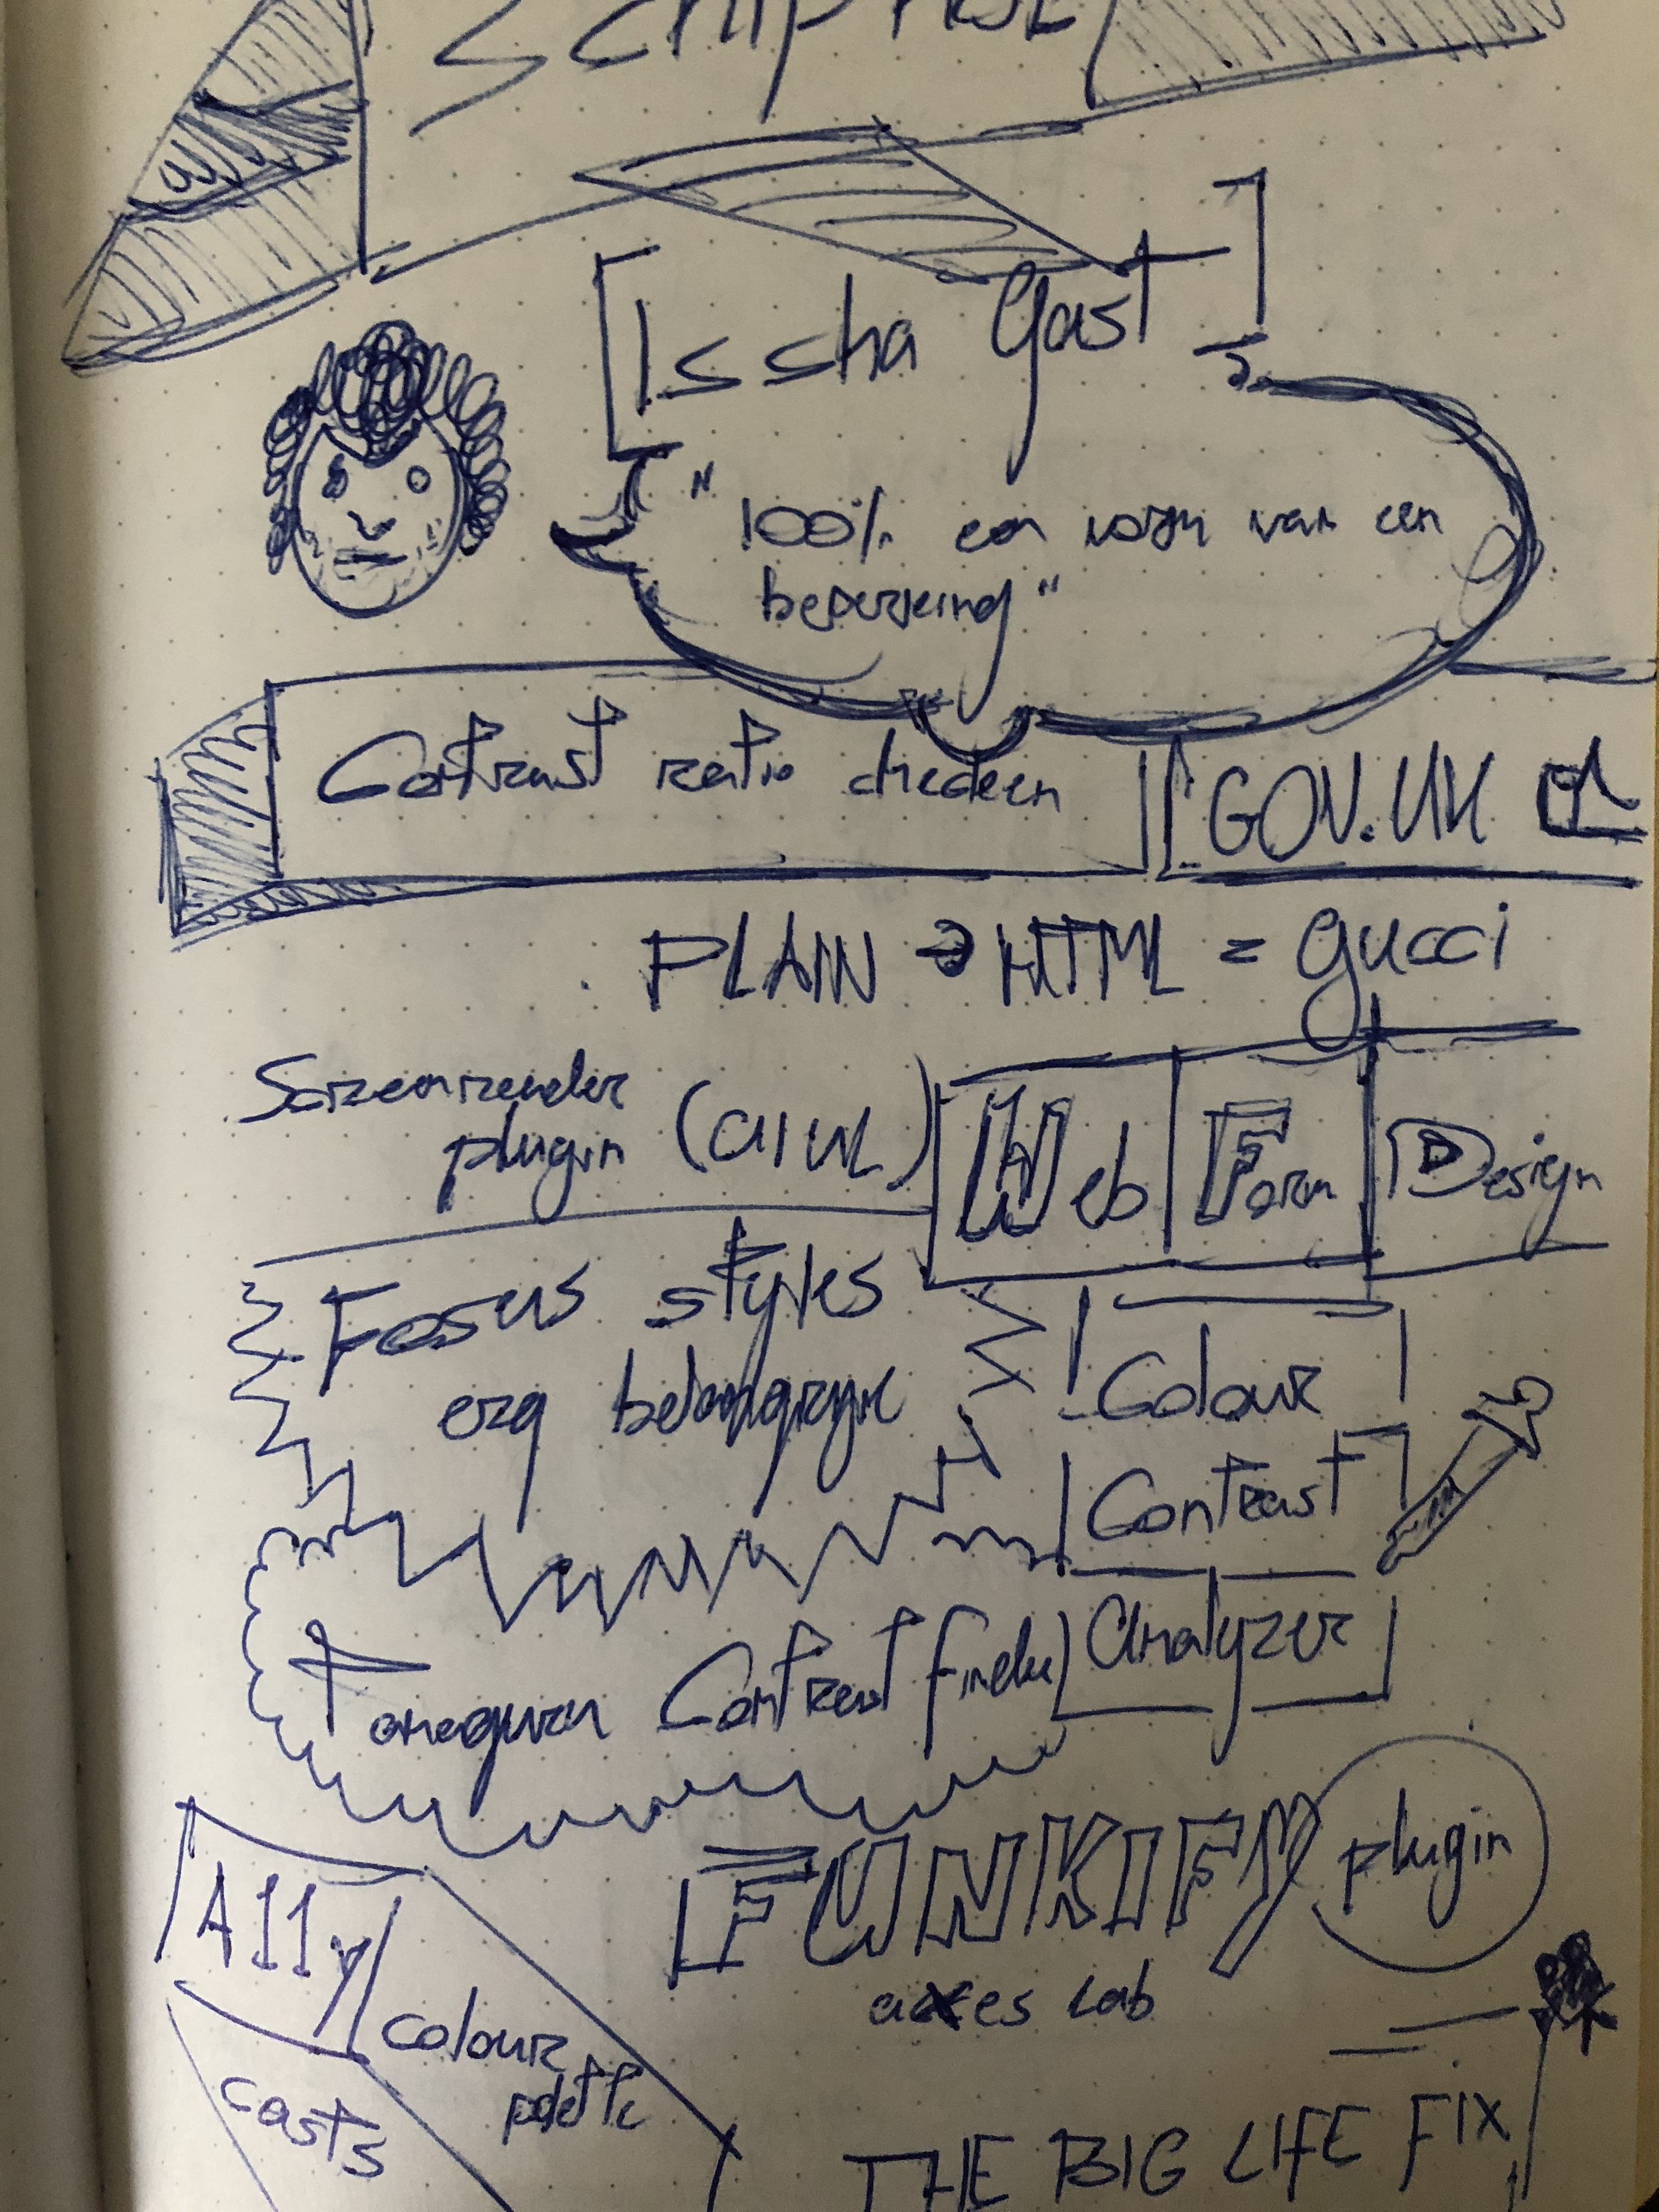 Isscha Gast
"100% een vorm van een
beperking"
Contrast ratio checken
GOV.UK
PLAIN → HTML = gucci
Screenreader
plugin
Web Form Design
Focus styles
erg belangrijk
Colour
Contrast
Analyzer
Tanaguru Contrast finder
FUNKIFY plugin
axes Lab
A11y
colour
palette
casts
THE BIG LIFE FIX